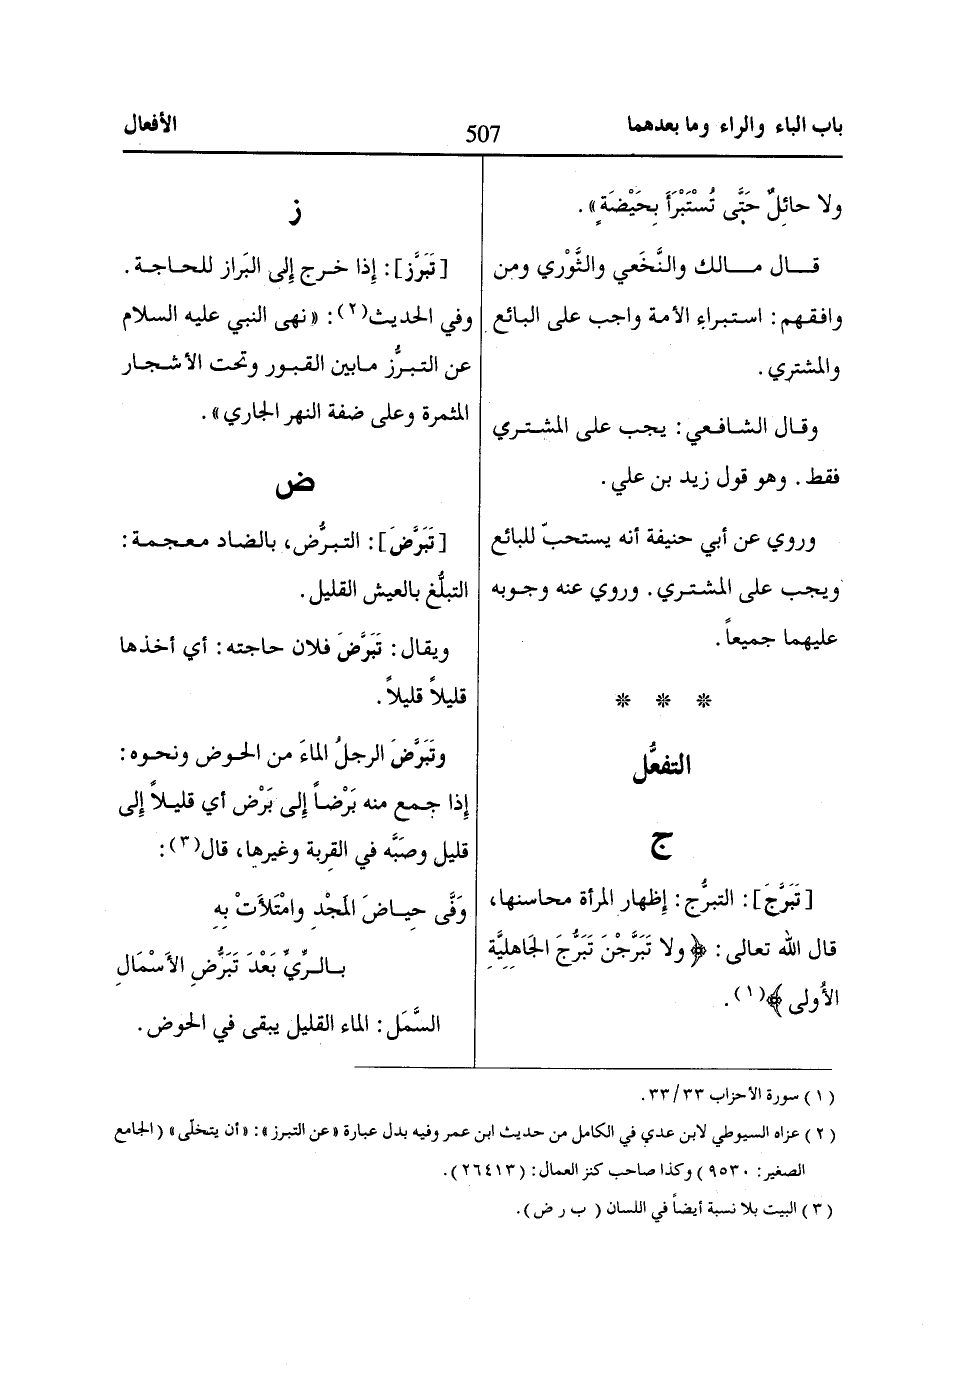 باب الباء والراء وما بعدهما
507
الأفعال
ولا حائِلٌ حَتَّى تُسْتَبْرَأَ بِحَيْضَةٍ».
قـال مـالك والنَّخَعي والثَّوْري ومن
وافقهم: استبراء الأمة واجب على البائع
والمشتري.
وقال الشافعي: يجب على المشتري
فقط. وهو قول زيد بن علي.
وروي عن أبي حنيفة أنه يستحبّ للبائع
ويجب على المشتري. وروي عنه وجوبه
عليهما جميعاً.
* * *
التفعُّل
ج
[تَبَرَّجَ]: التبرُّج: إظهار المرأة محاسنها،
قال الله تعالى: ﴿ولا تَبَرَّجْنَ تَبَرُّجَ الجَاهِلِيَّةِ
الأُولى﴾(١).
ز
[تَبَرَّز]: إذا خرج إلى البَراز للحاجة.
وفي الحديث(٢): «نهى النبي عليه السلام
عن التبرُّز مابين القبور وتحت الأشجار
المثمرة وعلى ضفة النهر الجاري».
ض
[تَبَرَّضَ]: التبرُّض، بالضاد معجمة:
التبلُّغ بالعيش القليل.
ويقال: تَبَرَّضَ فلان حاجته: أي أخذها
قليلاً قليلاً.
وتَبَرَّضَ الرجلُ الماءَ من الحوض ونحوه:
إذا جمع منه بَرْضاً إلى بَرْض أي قليلاً إلى
قليل وصَبَّه في القربة وغيرها، قال(٣):
وَفَّى حِيـاضَ المَجْدِ وامْتَلَأتْ بِهِ
بـالـرِّيِّ بَعْدَ تَبَرُّضِ الأَسْمَالِ
السَّمَل: الماء القليل يبقى في الحوض.
(١) سورة الأحزاب ٣٣/٣٣.
(٢) عزاه السيوطي لابن عدي في الكامل من حديث ابن عمر وفيه بدل عبارة «عن التبرز»: «أن يتخلّى» (الجامع
الصغير: ٩٥٣٠) وكذا صاحب كنز العمال: (٢٦٤١٣).
(٣) البيت بلا نسبة أيضاً في اللسان (ب ر ض).